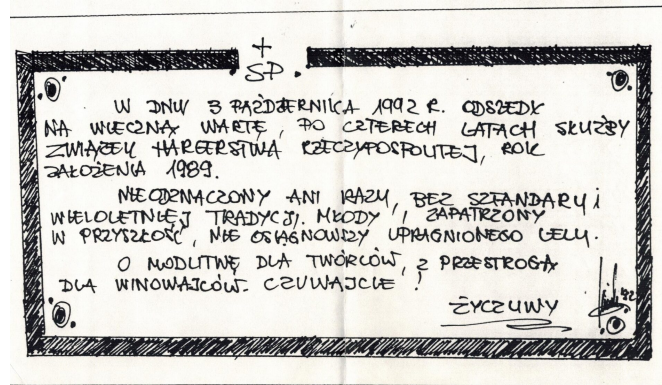 +
ŚP.
W DNIU 3 PAŹDZIERNIKA 1992 R. ODSZEDŁ
NA WIECZNĄ WARTĘ, PO CZTERECH LATACH SŁUŻBY
ZWIĄZEK HARCERSTWA RZECZYPOSPOLITEJ, ROK
ZAŁOŻENIA 1989.
NIEODZNACZONY ANI RAZU, BEZ SZTANDARU I
WIELOLETNIEJ TRADYCJI. MŁODY, ZAPATRZONY
W PRZYSZŁOŚĆ, NIE OSIĄGNĄWSZY UPRAGNIONEGO CELU.
O MODLITWĘ DLA TWÓRCÓW, Z PRZESTROGĄ
DLA WINOWAJCÓW. CZUWAJCIE!
ŻYCZLIWY